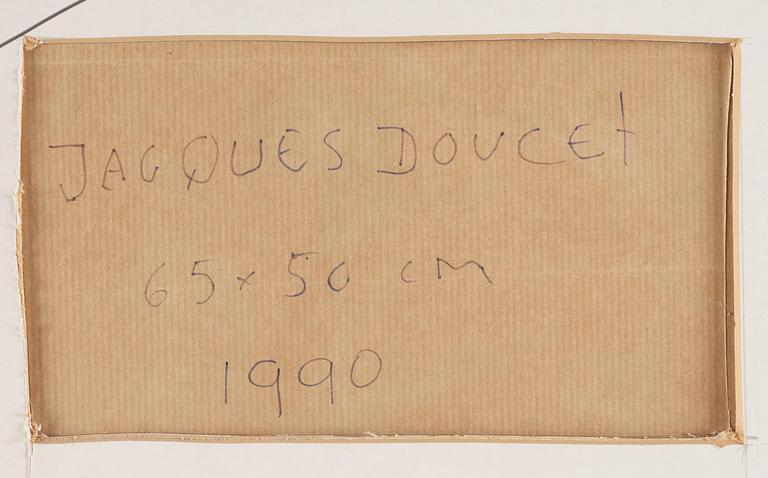 JACQUES DOUCET
65 x 50 cm
1990